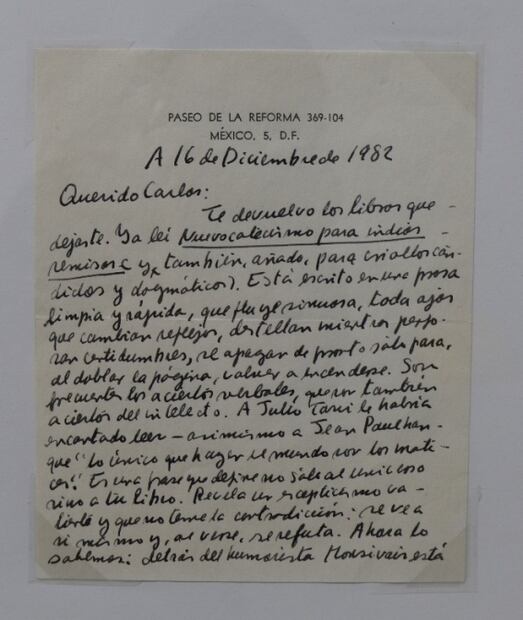 PASEO DE LA REFORMA 369-104
MÉXICO, 5, D.F.
A 16 de Diciembre de 1982
Querido Carlos:
Te devuelvo los libros que
dejaste. Ya leí Nuevo catecismo para indios
remisos (y, también, añado, para criollos cán-
didos y dogmáticos). Está escrito en una prosa
limpia y rápida, que fluye sinuosa, toda ojos
que cambian reflejos, destellan mientras perfo-
ran certidumbres, se apagan de pronto sólo para,
al doblar la página, volver a encenderse. Son
frecuentes los aciertos verbales, que son también
aciertos del intelecto. A Julio Torri le habría
encantado leer — asimismo a Jean Paulhan —
que "lo único que hay en el mundo son los mati-
ces". Es una frase que define no sólo al universo
sino a tu libro. Revela un escepticismo va-
liente y que no teme la contradicción: se ve a
sí mismo y, al verse, se refuta. Ahora lo
sabemos: detrás del humorista Monsiváis está